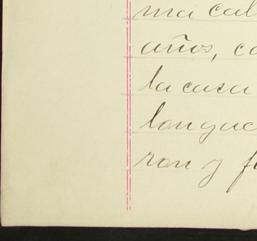 ma cal
años, co
la casa
longue
ron y f